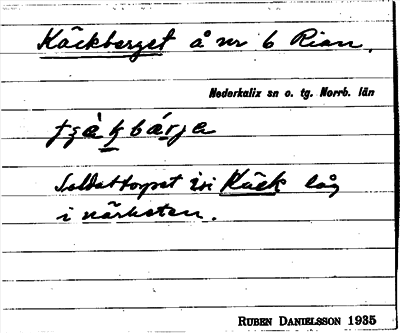 Käckberget å nr 6 Rian.
Nederkalix sn o. tg. Norrb. län
Soldattorpet Käck låg
i närheten.
RUBEN DANIELSSON 1935